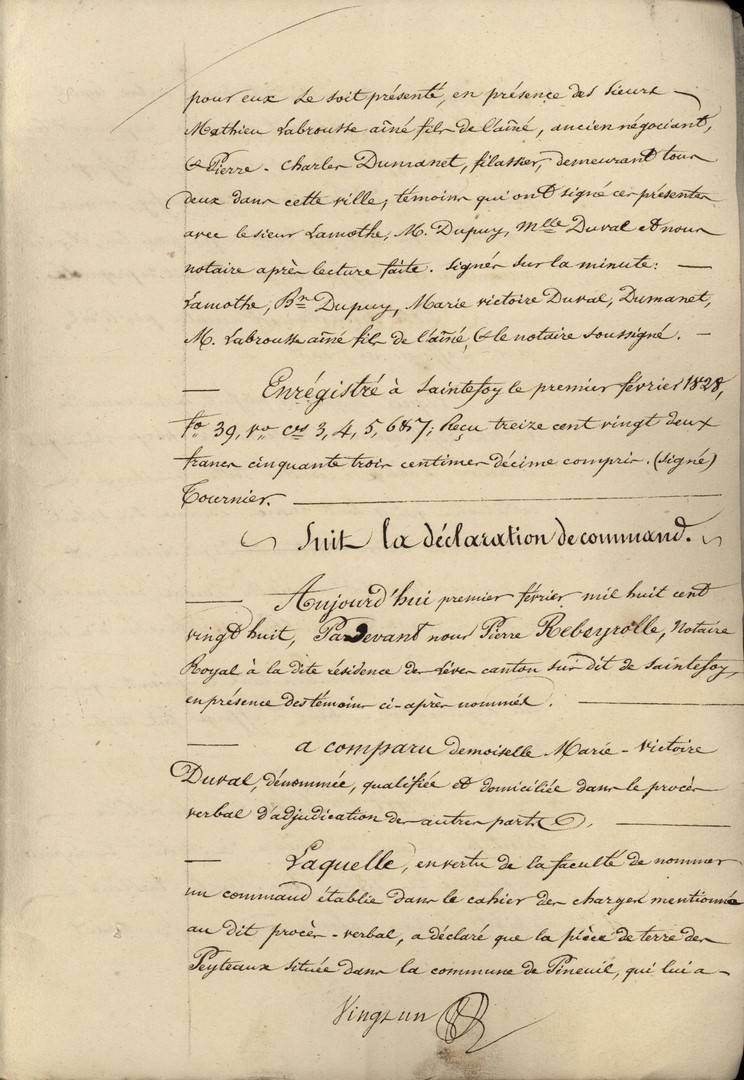 pour eux se soit présenté, en présence des sieurs
Mathieu Labrousse aîné fils de l'aîné, ancien négociant,
& Pierre-Charles Dumanet, filassier, demeurant tous
deux dans cette ville, témoins qui ont signé ces présentes
avec le sieur Lamothe, M. Dupuy, Mlle Duval et nous
notaire après lecture faite. Signés sur la minute:
Lamothe, Bn Dupuy, Marie victoire Duval, Dumanet,
M. Labrousse aîné fils de l'aîné, & le notaire soussigné.
Enrégistré à Saintefoy le premier février 1828,
fo 39, vo cses 3, 4, 5, 6 & 7; Reçu treize cent vingt deux
francs cinquante trois centimes décime compris. (signé)
Tournier.
Suit la déclaration de command.
Aujourd'hui premier février mil huit cent
vingt huit, Pardevant nous Pierre Rebeyrolle, Notaire
Royal à la dite résidence des Lèves canton sus dit de Saintefoy,
en présence des témoins ci-après nommés.
a comparu demoiselle Marie-victoire
Duval, dénommée, qualifiée et domiciliée dans le procès
verbal d'adjudication des autres parts.
Laquelle, en vertu de la faculté de nommer
un command établie dans le cahier des charges mentionné
au dit procès-verbal, a déclaré que la pièce de terre des
Peyteaux située dans la commune de Pineuil, qui lui a
Vingt un